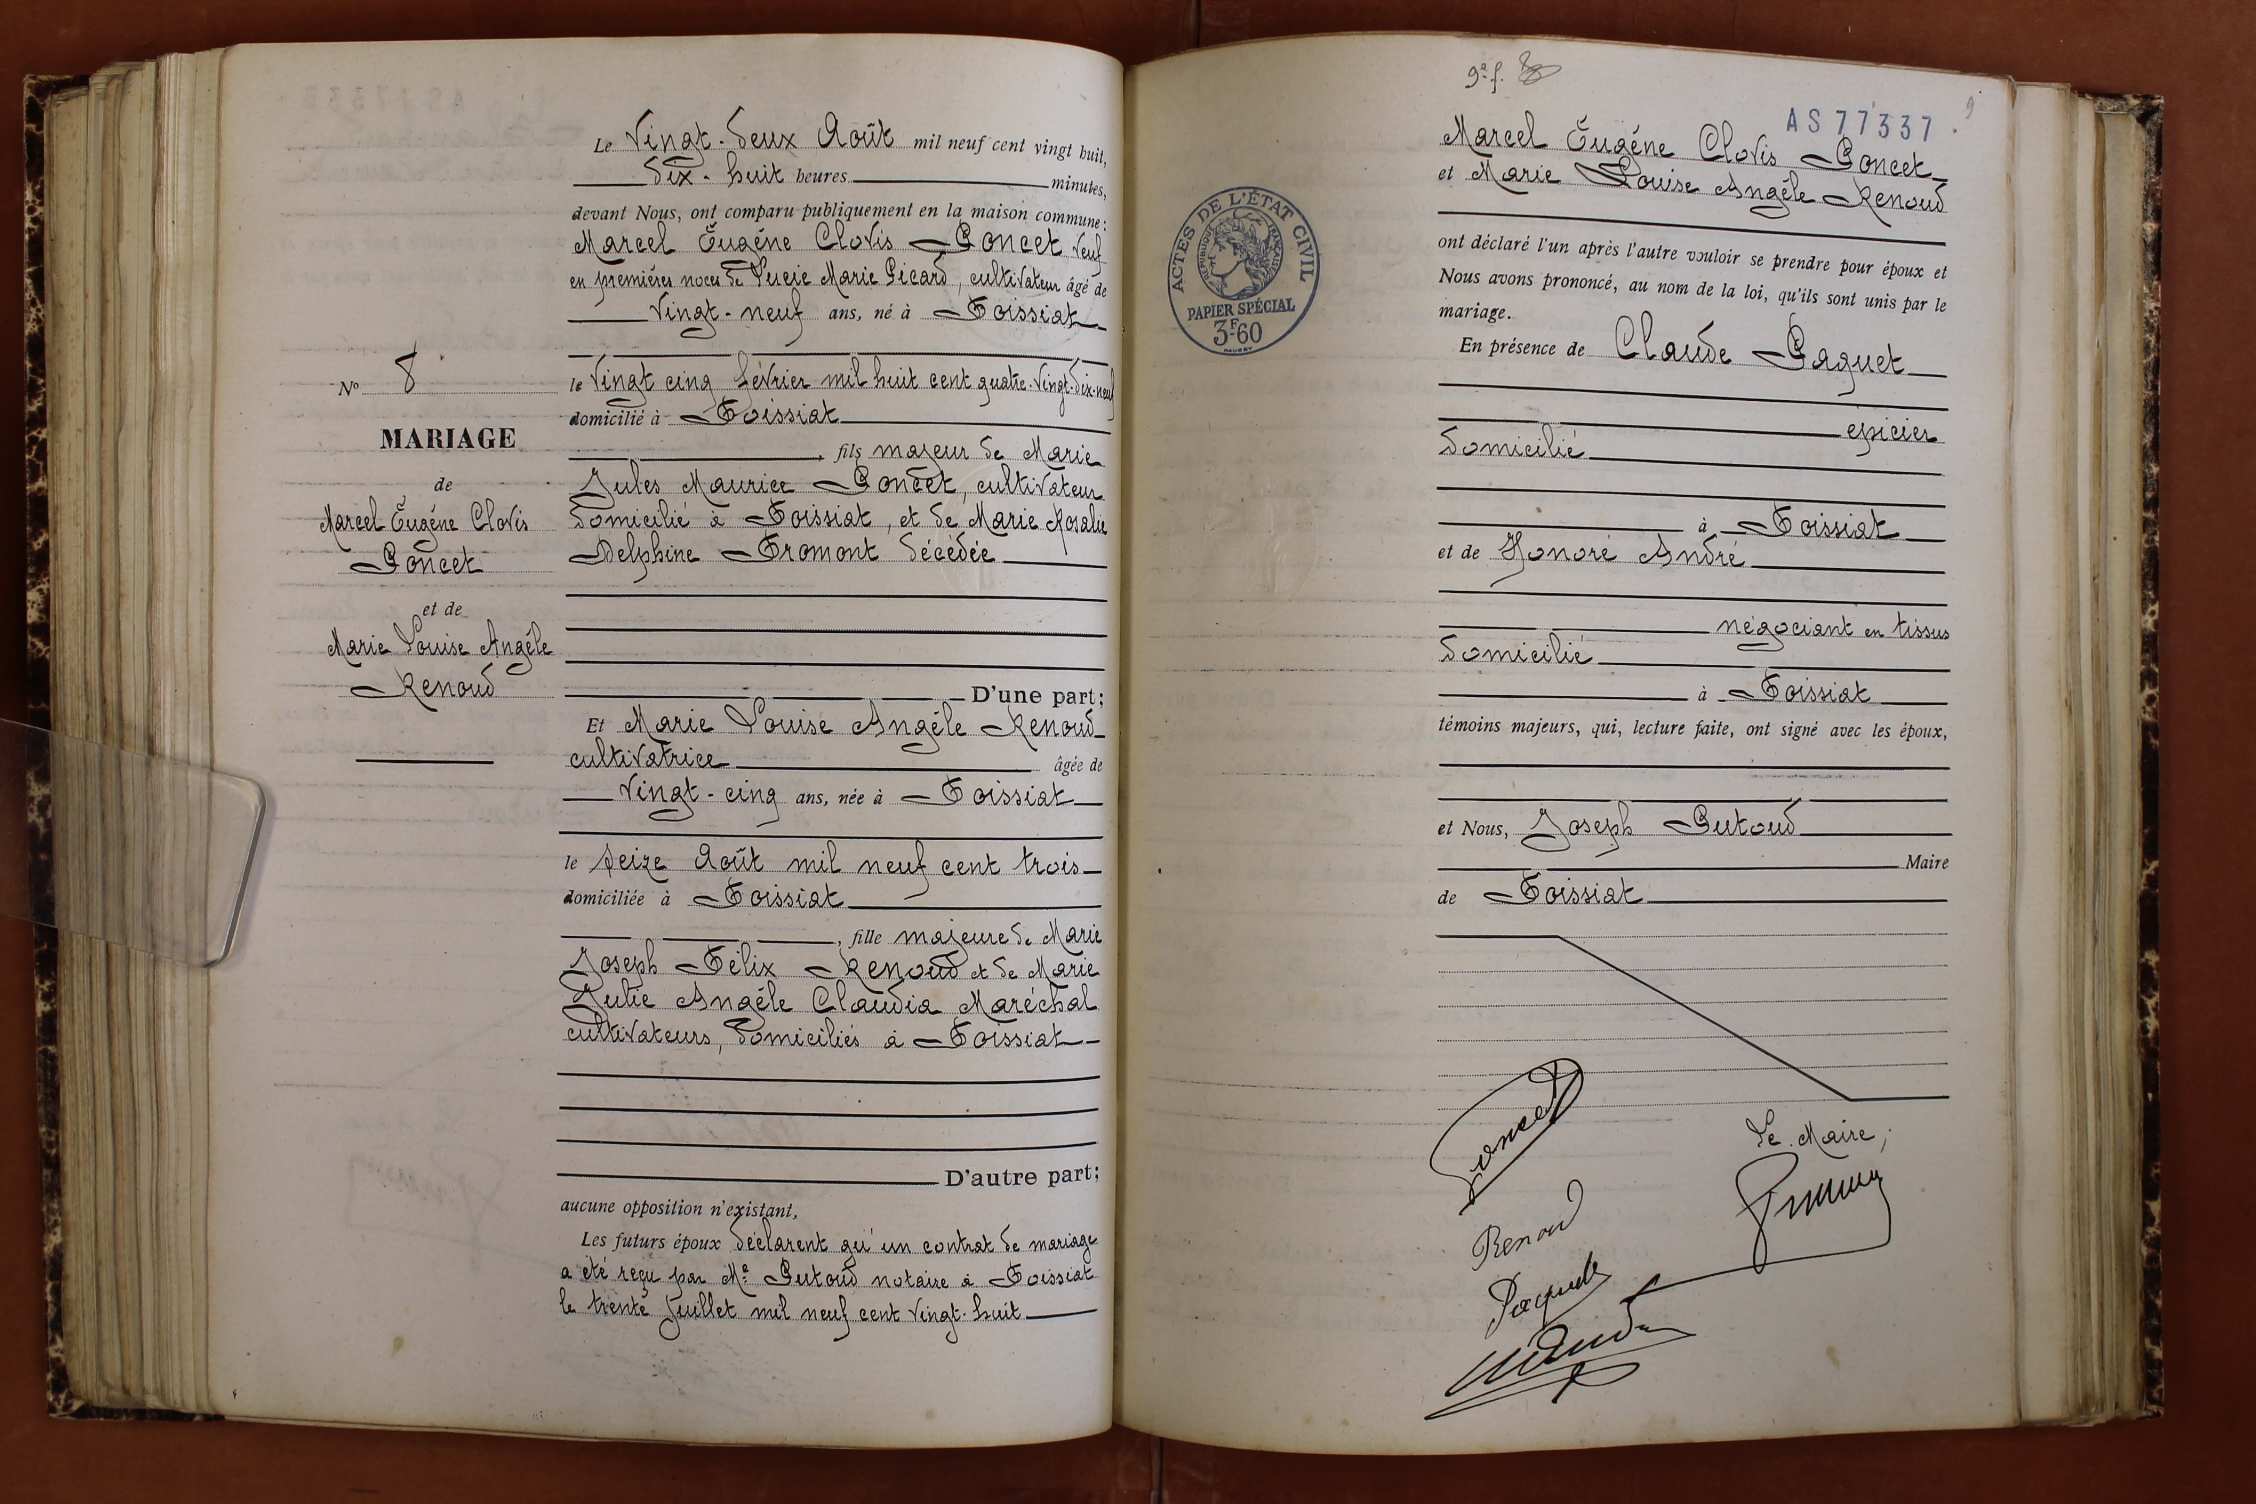 Le Vingt-deux Août mil neuf cent vingt huit,
dix-huit heures minutes,
devant Nous, ont comparu publiquement en la maison commune:
Marcel Eugéne Clovis Poncet veuf
en premières noces de Lucie Marie Picard, cultivateur âgé de
vingt-neuf ans, né à Foissiat
le vingt cinq février mil huit cent quatre-vingt-dix-neuf
domicilié à Foissiat
, fils majeur de Marie
Jules Maurice Poncet, cultivateur
domicilié à Foissiat, et de Marie Rosalie
Delphine Fromont décédée
D'une part;
Et Marie Louise Angéle Renoud
cultivatrice âgée de
vingt-cinq ans, née à Foissiat
le seize Août mil neuf cent trois
domiciliée à Foissiat
, fille majeure de Marie
Joseph Félix Renoud et de Marie
Julie Angéle Claudia Maréchal
cultivateurs, domiciliés à Foissiat
D'autre part;
aucune opposition n'existant,
Les futurs époux déclarent qu'un contrat de mariage
a été reçu par Me Putoud notaire à Foissiat
le trente Juillet mil neuf cent vingt-huit
No 8
MARIAGE
de
Marcel Eugéne Clovis
Poncet
et de
Marie Louise Angéle
Renoud
9e f.
AS 77337
9
ACTES DE L'ÉTAT CIVIL
RÉPUBLIQUE FRANÇAISE
PAPIER SPÉCIAL
3F60
Marcel Eugéne Clovis Poncet
et Marie Louise Angéle Renoud
ont déclaré l'un après l'autre vouloir se prendre pour époux et
Nous avons prononcé, au nom de la loi, qu'ils sont unis par le
mariage.
En présence de Claude Paquet
épicier
domicilié
à Foissiat
et de Honoré André
négociant en tissus
domicilié
à Foissiat
témoins majeurs, qui, lecture faite, ont signé avec les époux,
et Nous, Joseph Putoud
Maire
de Foissiat
Poncet
Le Maire,
Renoud
Paquet